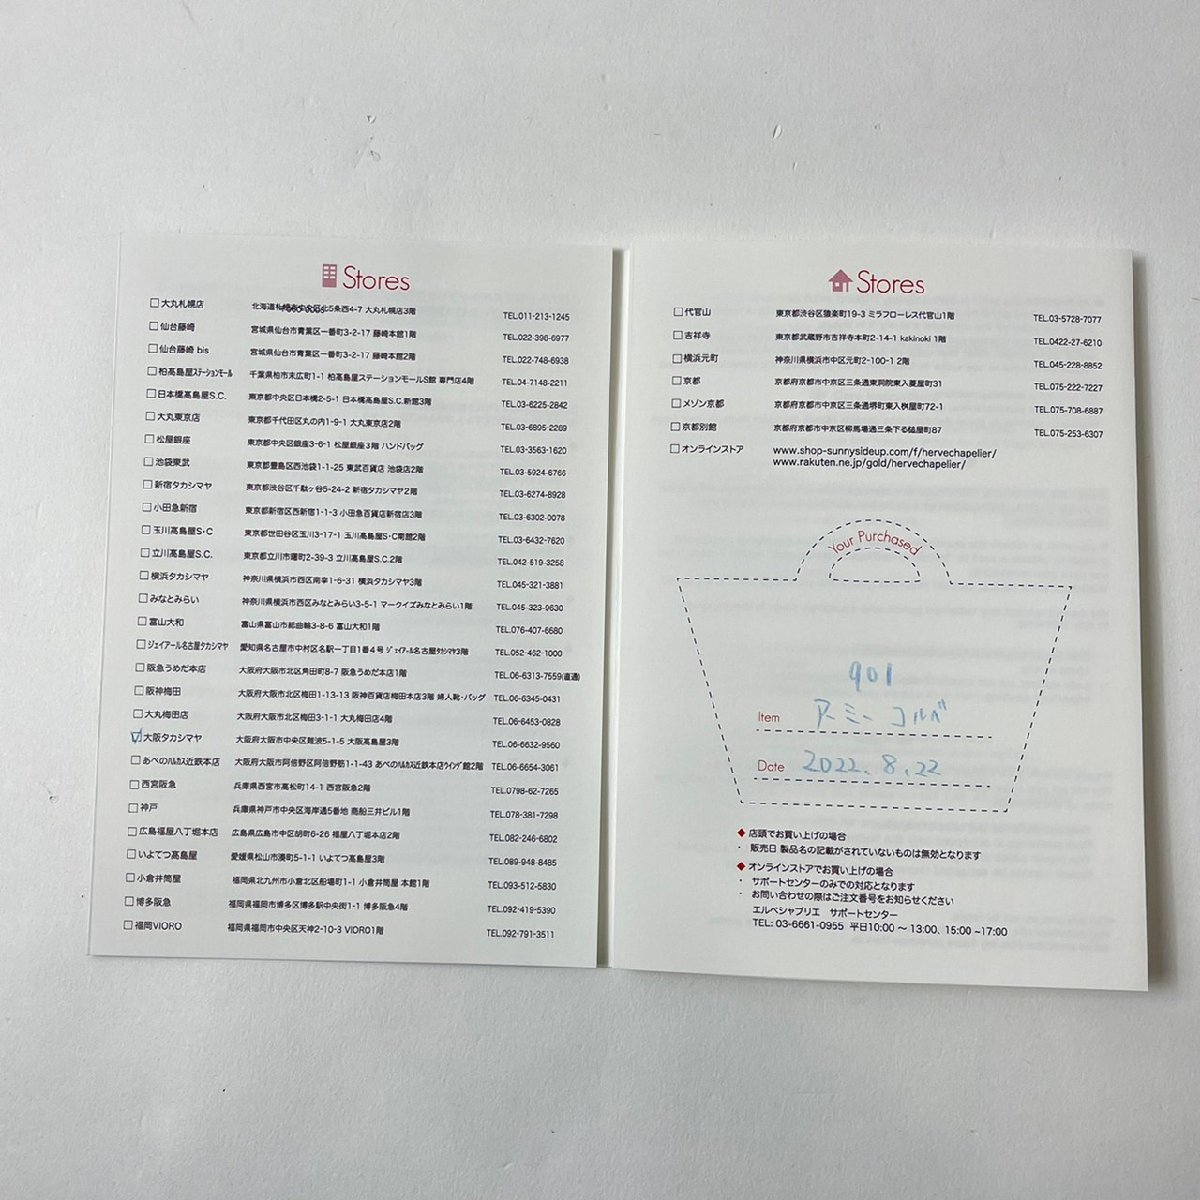 Stores
大丸札幌店 大丸札幌店3階 TEL.011-213-1245
仙台藤崎 宮城県仙台市青葉区一番町3-2-17 藤崎本館1階
仙台藤崎 bis 宮城県仙台市青葉区一番町3-2-17 藤崎本館2階 TEL.022-748-6938
柏高島屋ステーションモール 千葉県柏市末広町1-1 柏高島屋ステーションモールS館 専門店4階 TEL.04-7148-2211
日本橋高島屋S.C. 東京都中央区日本橋2-5-1 日本橋高島屋S.C.新館3階 TEL.03-6225-2842
大丸東京店 東京都千代田区丸の内1-9-1 大丸東京店2階 TEL.03-6895-2269
松屋銀座 東京都中央区銀座3-6-1 松屋銀座3階 ハンドバッグ TEL.03-3563-1620
池袋東武 東京都豊島区西池袋1-1-25 東武百貨店 池袋店2階 TEL.03-5924-6766
新宿タカシマヤ 東京都渋谷区千駄ヶ谷5-24-2 新宿タカシマヤ2階 TEL.03-6274-8928
小田急新宿 東京都新宿区西新宿1-1-3 小田急百貨店新宿店3階 TEL.03-6302-0078
玉川高島屋S・C 東京都世田谷区玉川3-17-1 玉川高島屋S・C南館2階 TEL.03-6432-7620
立川高島屋S.C. 東京都立川市曙町2-39-3 立川高島屋S.C.2階 TEL.042-519-3256
横浜タカシマヤ 神奈川県横浜市西区南幸1-6-31 横浜タカシマヤ3階 TEL.045-321-3881
みなとみらい 神奈川県横浜市西区みなとみらい3-5-1 マークイズみなとみらい1階 TEL.045-323-9630
富山大和 富山県富山市総曲輪3-8-6 富山大和1階 TEL.076-407-5680
ジェイアール名古屋タカシマヤ 愛知県名古屋市中村区名駅一丁目1番4号 ジェイアール名古屋タカシマヤ3階 TEL.052-462-1000
阪急うめだ本店 大阪府大阪市北区角田町8-7 阪急うめだ本店1階 TEL.06-6313-7559(直通)
阪神梅田 大阪府大阪市北区梅田1-13-13 阪神百貨店梅田本店3階 婦人靴・バッグ TEL.06-6345-0431
大丸梅田店 大阪府大阪市北区梅田3-1-1 大丸梅田店4階 TEL.06-6453-0828
大阪タカシマヤ 大阪府大阪市中央区難波5-1-5 大阪高島屋3階 TEL.06-6632-9560
あべのハルカス近鉄本店 大阪府大阪市阿倍野区阿倍野筋1-1-43 あべのハルカス近鉄本店ウイング館2階 TEL.06-6654-3061
西宮阪急 兵庫県西宮市高松町14-1 西宮阪急2階 TEL.0798-62-7265
神戸 兵庫県神戸市中央区海岸通5番地 商船三井ビル1階 TEL.078-381-7298
広島福屋八丁堀本店 広島県広島市中区胡町6-26 福屋八丁堀本店2階 TEL.082-246-6802
いよてつ高島屋 愛媛県松山市湊町5-1-1 いよてつ高島屋3階 TEL.089-948-8485
小倉井筒屋 福岡県北九州市小倉北区船場町1-1 小倉井筒屋 本館1階 TEL.093-512-5830
博多阪急 福岡県福岡市博多区博多駅中央街1-1 博多阪急4階 TEL.092-419-5390
福岡VIORO 福岡県福岡市中央区天神2-10-3 VIORO1階 TEL.092-791-3511
Stores
代官山 東京都渋谷区猿楽町19-3 ミラフローレス代官山1階 TEL.03-5728-7077
吉祥寺 東京都武蔵野市吉祥寺本町2-14-1 kakinoki 1階 TEL.0422-27-6210
横浜元町 神奈川県横浜市中区元町2-100-1 2階 TEL.045-228-8852
京都 京都府京都市中京区三条通東洞院東入菱屋町31 TEL.075-222-7227
メゾン京都 京都府京都市中京区三条通堺町東入桝屋町72-1 TEL.075-708-6887
京都別館 京都府京都市中京区柳馬場通三条下る槌屋町87 TEL.075-253-6307
オンラインストア www.shop-sunnysideup.com/f/hervechapelier/
www.rakuten.ne.jp/gold/hervechapelier/
Your Purchased
901
Item アーミー コルベ
Date 2022.8.22
◆ 店頭でお買い上げの場合
・ 販売日 製品名の記載がされていないものは無効となります
◆ オンラインストアでお買い上げの場合
・ サポートセンターのみでの対応となります
・ お問い合わせの際はご注文番号をお知らせください
エルベシャプリエ サポートセンター
TEL: 03-6661-0955 平日10:00 ～ 13:00、15:00 ~17:00